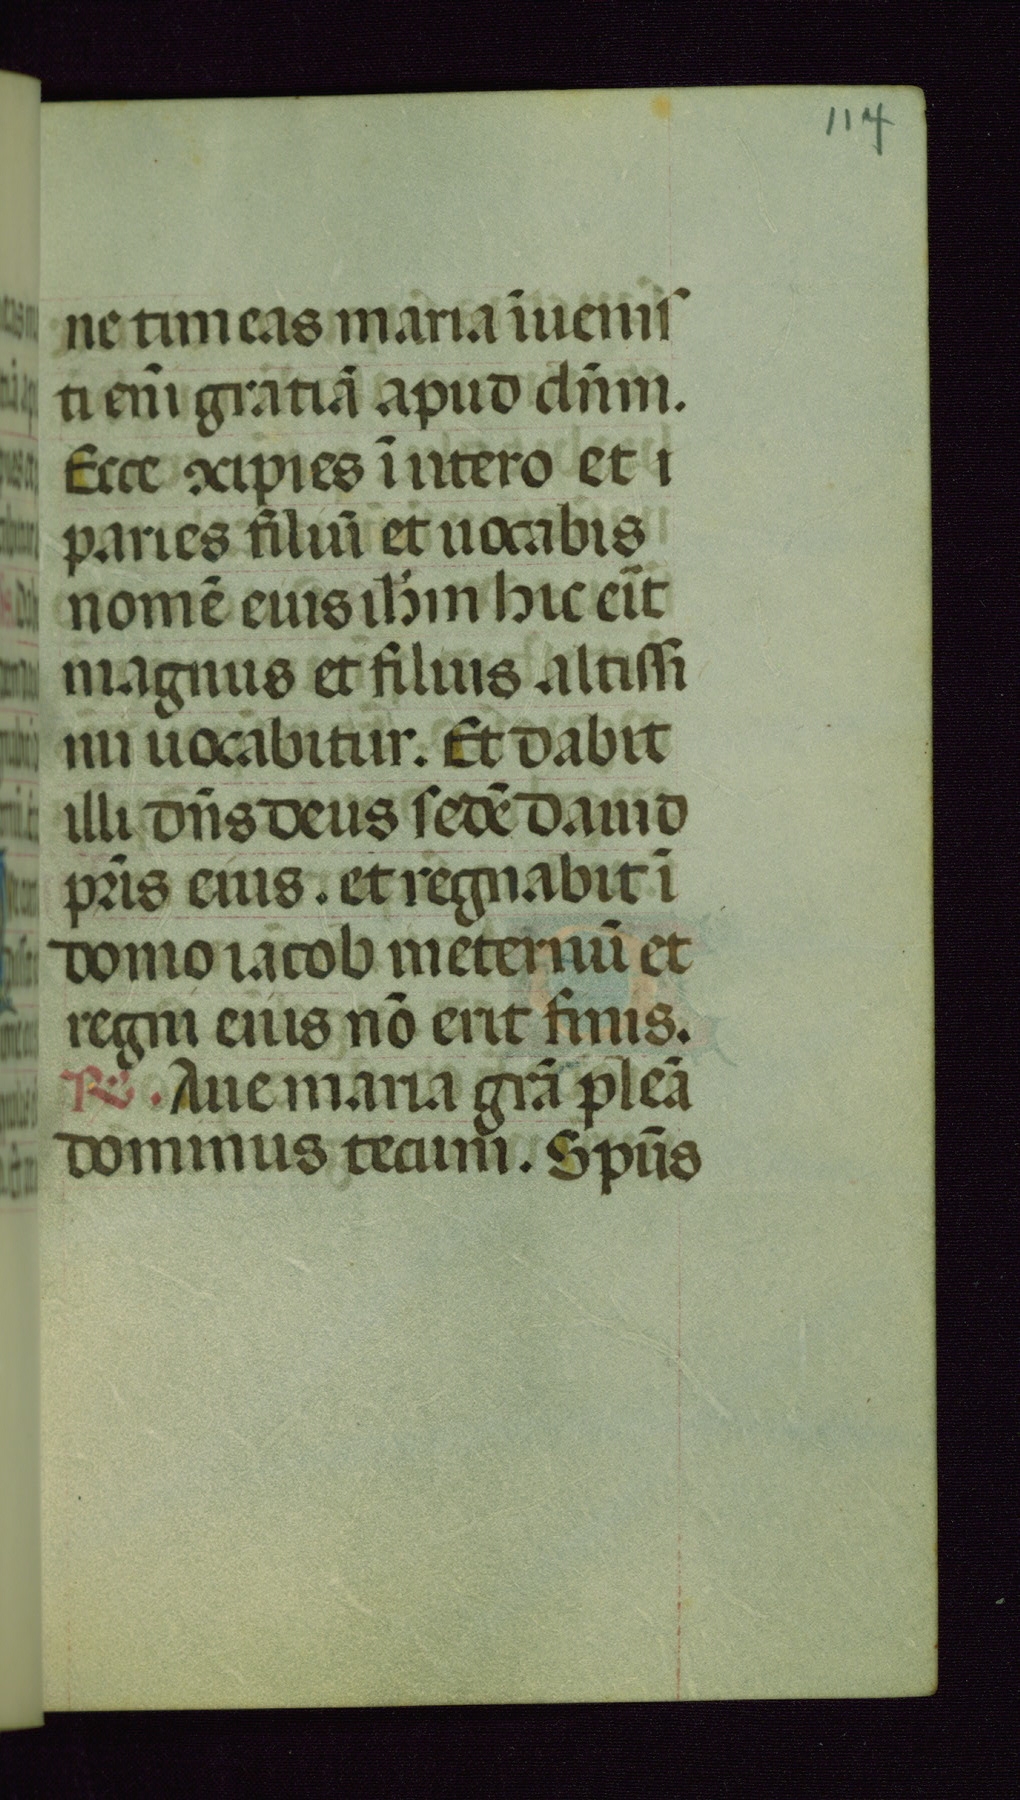 114
ne timeas maria īuenis
ti em̄ gratiā apud dn̄m.
Ecce ꝯcipies ī utero et i
paries filiū et uocabis
nomē eius ih̄m hic eīt
magnus et filius altissi
mi uocabitur. Et dabit
illi dn̄s deus sedē dauid
pr̄is eius. et regnabit ī
domo iacob in eternū et
regni eius nō erit finis.
R̄. Aue maria grā̄ plēa
dominus tecum. Sp̄us